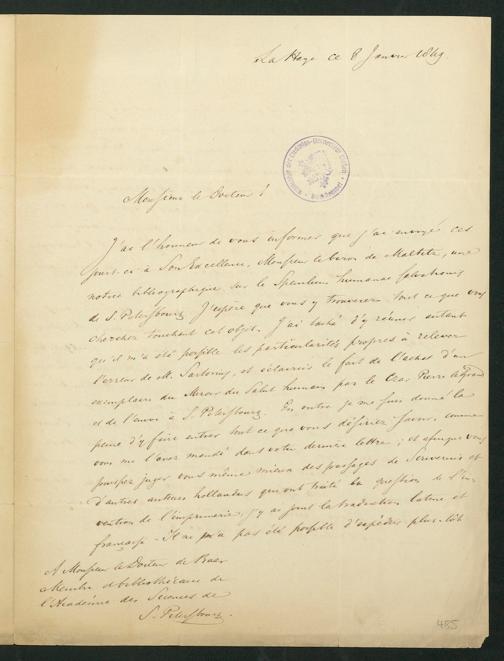 La Haye ce 8 Janvier 1849
Monsieur le Docteur!
J'ai l'honneur de vous informer que j'ai envoyé ces
jours-ci à Son Excellence, Monsieur le baron de Maltitz, une
notice bibliographique sur le Speculum humanae salvationis
de S. Petersbourg. J'espère que vous y trouverez tout ce que vous
cherchez touchant cet objet. J'ai taché d'y réunir autant
qu'il m'a été possible les particularités propres à relever
l'erreur de M. Sartorius, et éclaircir le fait de l'achat d'un
exemplaire du Miroir du Salut humain par le Czar Pierre le Grand
et de l'envoi à S. Petersbourg. En outre je me suis donné la
peine d'y faire entrer tout ce que vous désiriez savoir, comme
vous me l'avez mandé dans votre dernière lettre; et afin que vous
puissiez juger vous même mieux des passages de Scriverius et
d'autres auteurs hollandais qui ont traité la question de l'in-
vention de l'imprimerie, j'y ai joint la traduction latine et
française. Il ne m'a pas été possible d'expédier plus-tôt
A Monsieur le Docteur de Baer
Membre et bibliothécaire de
l'Académie des Sciences de
S. Petersbourg.
485